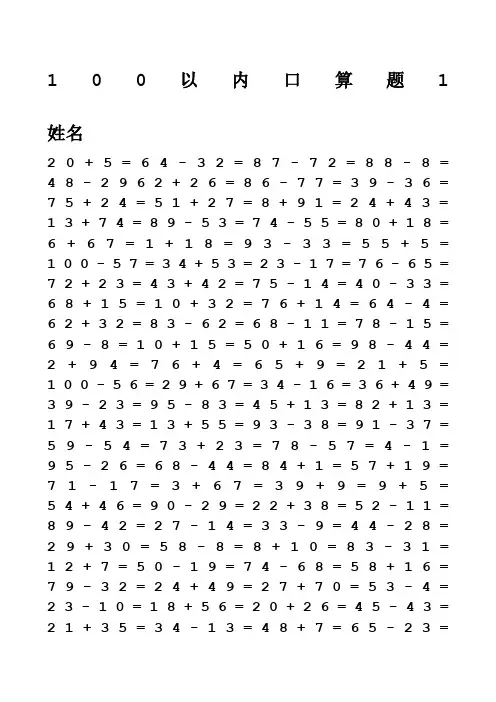 100以内口算题1
姓名
20+5=64-32=87-72=88-8=
48-2962+26=86-77=39-36=
75+24=51+27=8+91=24+43=
13+74=89-53=74-55=80+18=
6+67=1+18=93-33=55+5=
100-57=34+53=23-17=76-65=
72+23=43+42=75-14=40-33=
68+15=10+32=76+14=64-4=
62+32=83-62=68-11=78-15=
69-8=10+15=50+16=98-44=
2+94=76+4=65+9=21+5=
100-56=29+67=34-16=36+49=
39-23=95-83=45+13=82+13=
17+43=13+55=93-38=91-37=
59-54=73+23=78-57=4-1=
95-26=68-44=84+1=57+19=
71-17=3+67=39+9=9+5=
54+46=90-29=22+38=52-11=
89-42=27-14=33-9=44-28=
29+30=58-8=8+10=83-31=
12+7=50-19=74-68=58+16=
79-32=24+49=27+70=53-4=
23-10=18+56=20+26=45-43=
21+35=34-13=48+7=65-23=